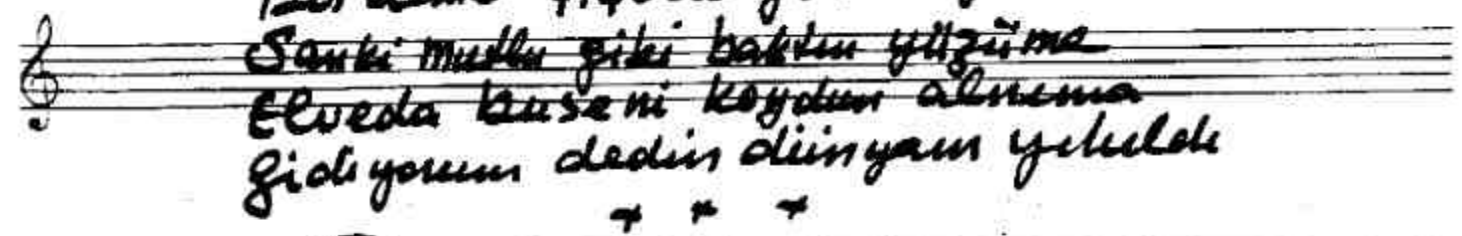 Sanki mutlu gibi baktın yüzüme
Elveda buseni koydun alnıma
Gidiyorum dedin dünyam yıkıldı
* * *